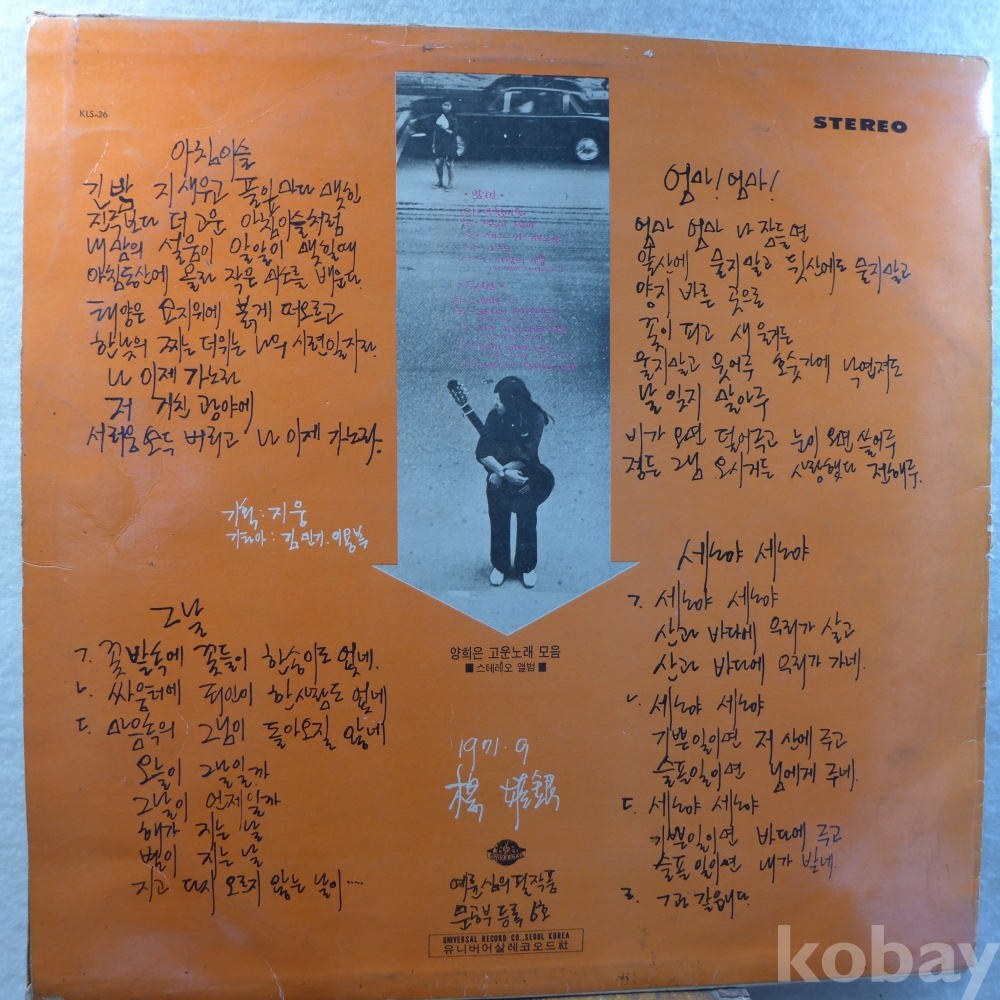 KLS-26
STEREO
아침이슬
긴 밤 지새우고 풀잎마다 맺힌
진주보다 더 고운 아침이슬처럼
내 맘의 설움이 알알이 맺힐때
아침동산에 올라 작은 미소를 배운다.
태양은 묘지위에 붉게 떠오르고
한낮의 찌는 더위는 나의 시련일지라.
나 이제 가노라
저 거친 광야에
서러움 모두 버리고 나 이제 가노라.
기획: 지웅
기타아: 김민기. 이용복
그날
ㄱ. 꽃밭속에 꽃들이 한송이도 없네.
ㄴ. 싸움터에 죄인이 한사람도 없네
ㄷ. 마음속의 그님이 돌아오질 않네
오늘이 그날일까
그날이 언제일까
해가 지는 날
별이 지는 날
지고 다시 오르지 않는 날이.....
양희은 고운노래 모음
■ 스테레오 앨범 ■
1971. 9
楊 姬銀
문공부 등록 6호
UNIVERSAL RECORD CO., SEOUL KOREA
유니버어살레코오드社
엄마! 엄마!
엄마 엄마 나 잠들면
앞산에 묻지말고 뒷산에도 묻지말고
양지 바른 곳으로
꽃이 피고 새 울거든
울지말고 웃어주 호숫가에 낙엽져도
날 잊지 말아주
비가 오면 덮어주고 눈이 오면 쓸어주
정든 그님 오시거든 사랑했다 전해주.
세노야 세노야
ㄱ. 세노야 세노야
산과 바다에 우리가 살고
산과 바다에 우리가 가네.
ㄴ. 세노야 세노야
기쁜일이면 저 산에 주고
슬픈일이면 님에게 주네.
ㄷ. 세노야 세노야
기쁜일이면 바다에 주고
슬픈일이면 내가 받네.
ㄹ. ㄱ과 같읍니다
kobay